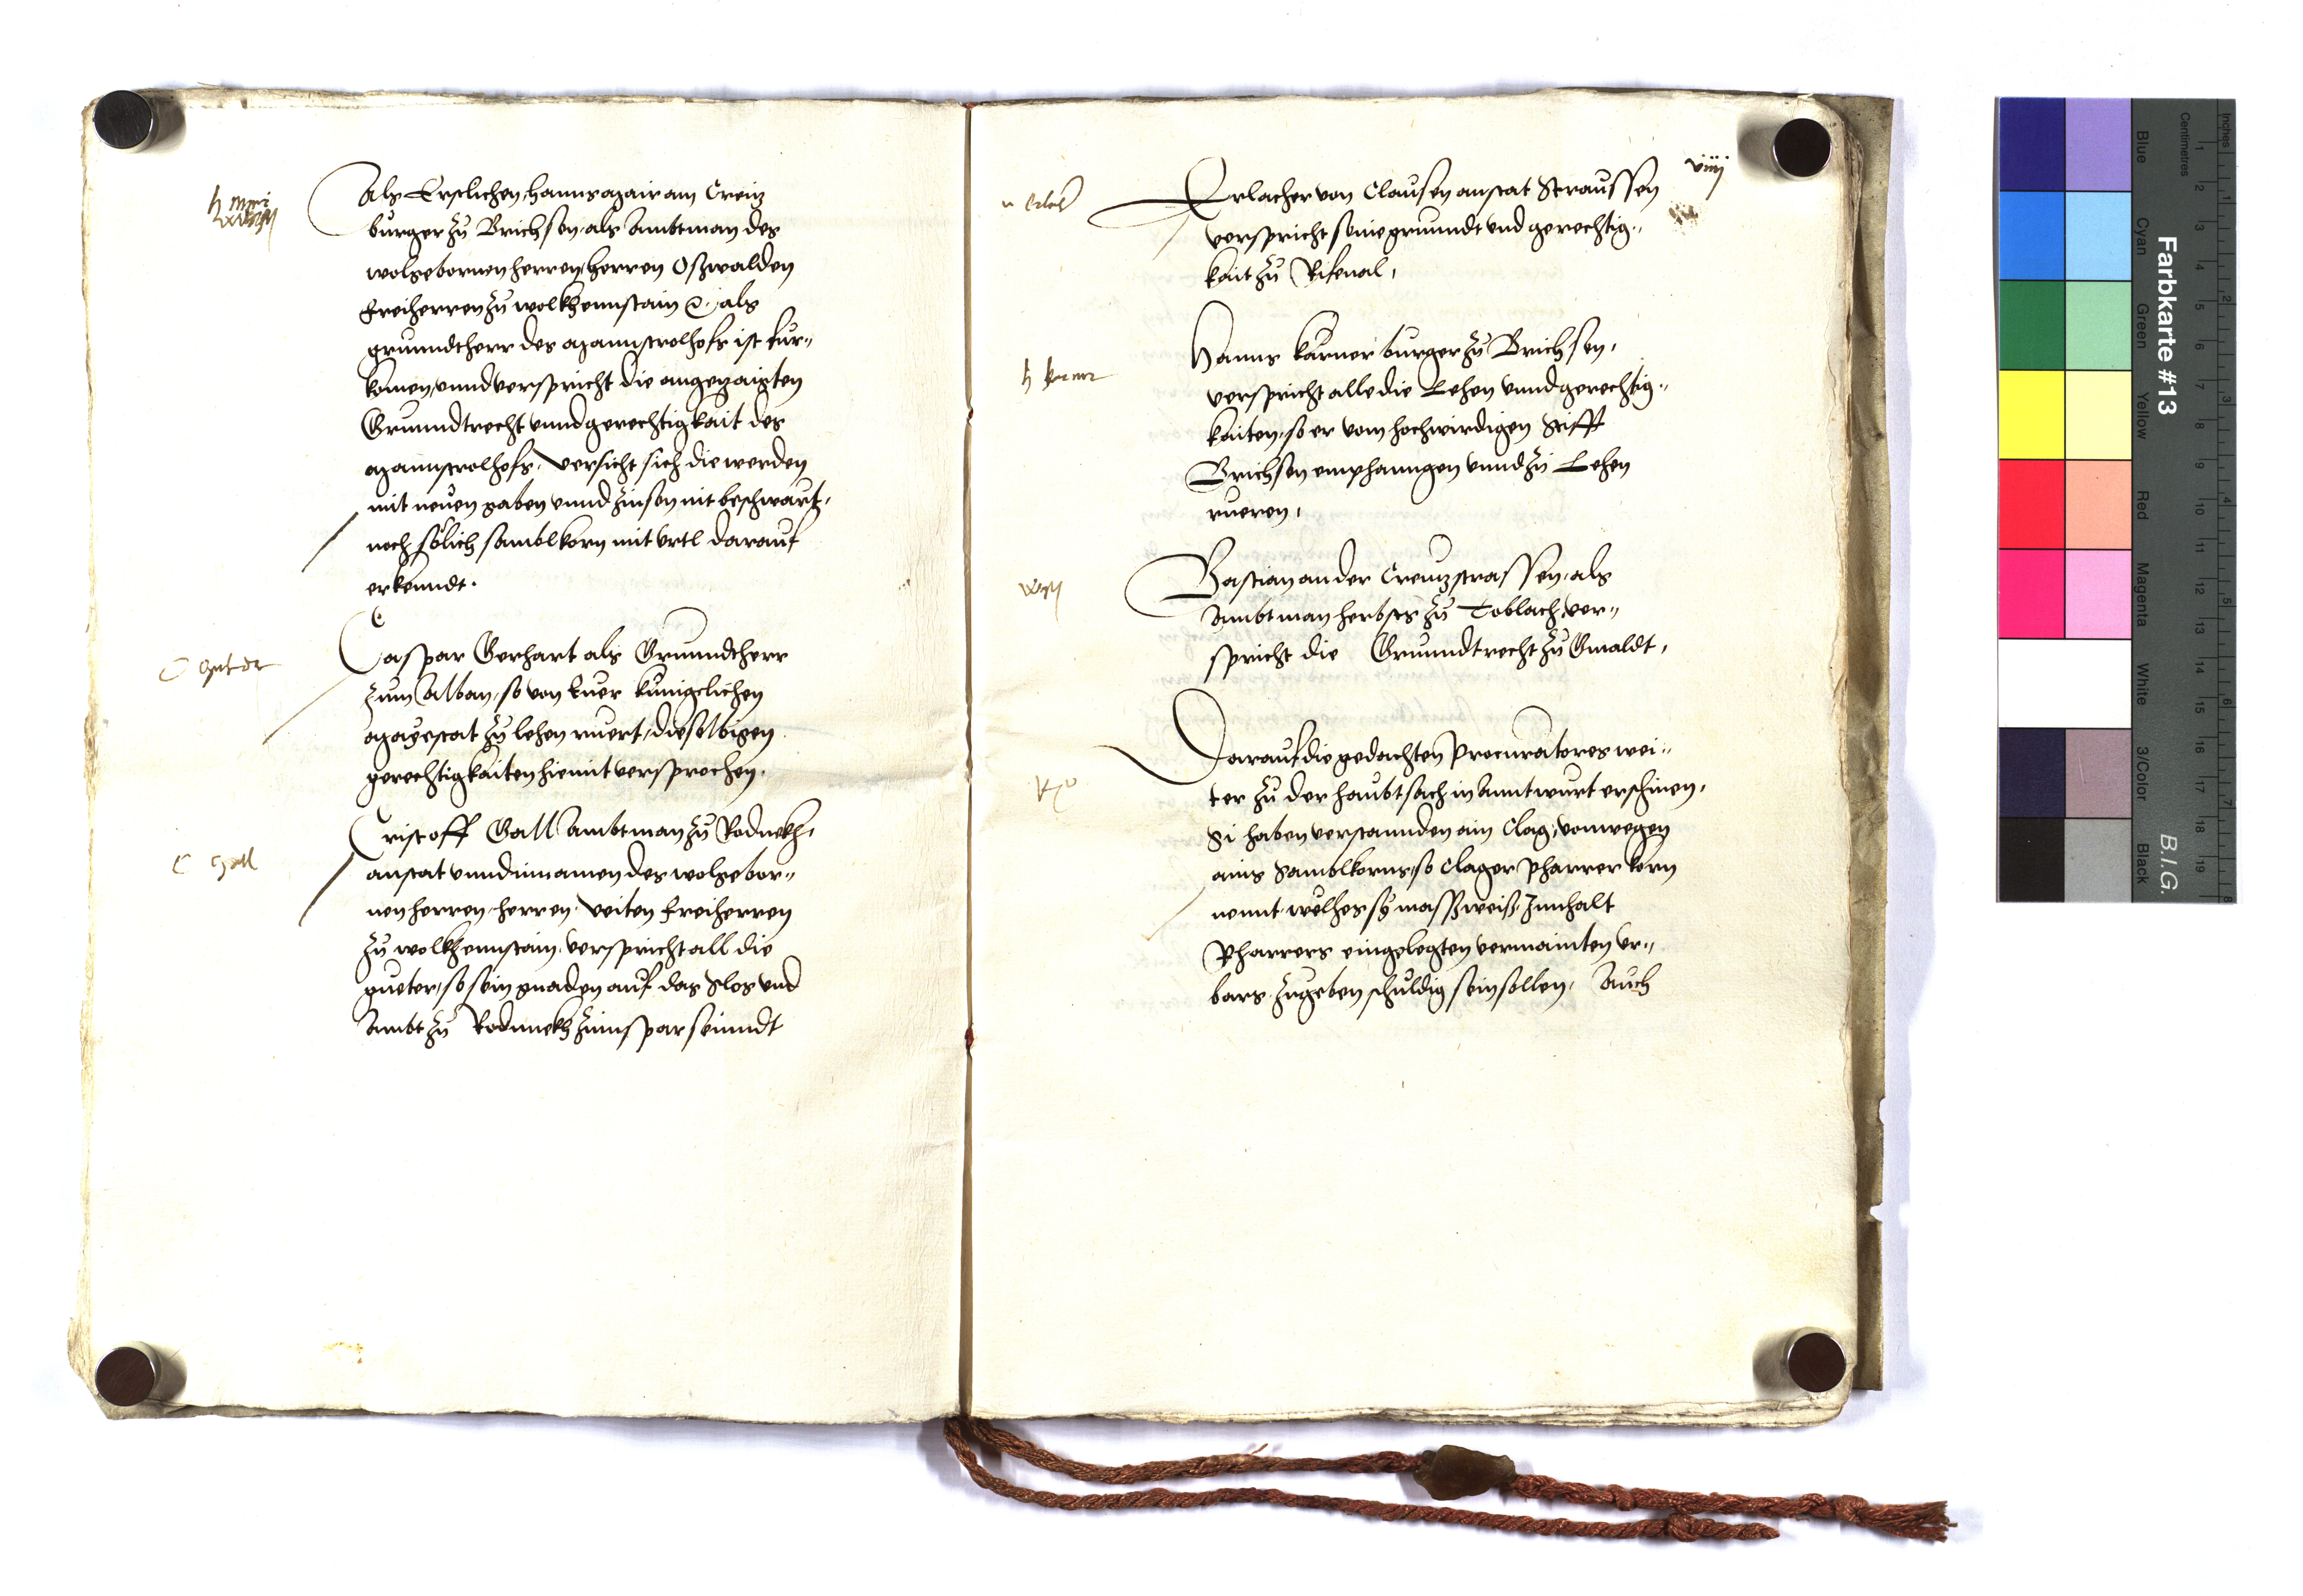 Als Erstlichen, Hanns Mair am Creitz
burger zu Brichsen, als Ambtman des
wolgebornen herren, herren Oßwalden
freiherren zu wolkhennstain &c. als
grunndtherr des Mannstrolhofs ist fur„
komen, unnd verspricht die angezaigten
Grunndtrecht unnd gerechtigkait des
Mannstrolhofs, versicht sich die werden
mit neuen gaben unnd zinsen nit beschwärt,
noch sölich samblkorn mit urtl darauf
erkenndt.
Caspar Gerhart als Grunndtherr
zum Alban, so von Euer kunigclichen
Mayestat zu lehen ruert, dieselbigen
gerechtigkaiten hiemit versprochen.
C Gall
Cristoff Gall Ambtman zu Rodnekh,
anstat unnd innamen des wolgebor„
nen herren, herren Veiten freiherren
zu wolkhennstain, verspricht all die
gueter, so sein gnaden auf das Slos und
Ambt zu Rodnnekh zinnspar seinndt
viiij
Erlacher von Clausen anstat Straussen
verspricht seine grunndt und gerechtig„
kait zu Rifenal,
h karner
Hanns karner burger zu Brichsen,
verspricht alle die Lehen unnd gerechtig„
kaiten, so er vom hochwirdigen Stifft
Brichsen emphanngen unnd zu Lehen
rueren,
Bastian an der Creutzstrassen, als
Ambtman herbsts zu Toblach, ver„
spricht die Grunndtrecht zu Gwaldt,
Darauf die gedachten Procuratores wei„
ter zu der haubtsach in Anntwurt erschinen,
Si haben verstannden ain Clag, vonwegen
ains Samblkorns, so Clager Pharrer korn
nennt, wölhes sy massweiß, Innhalt
Pharrers eingelegten vermainten Ur„
bars, zugeben schuldig sein sollen, Auch